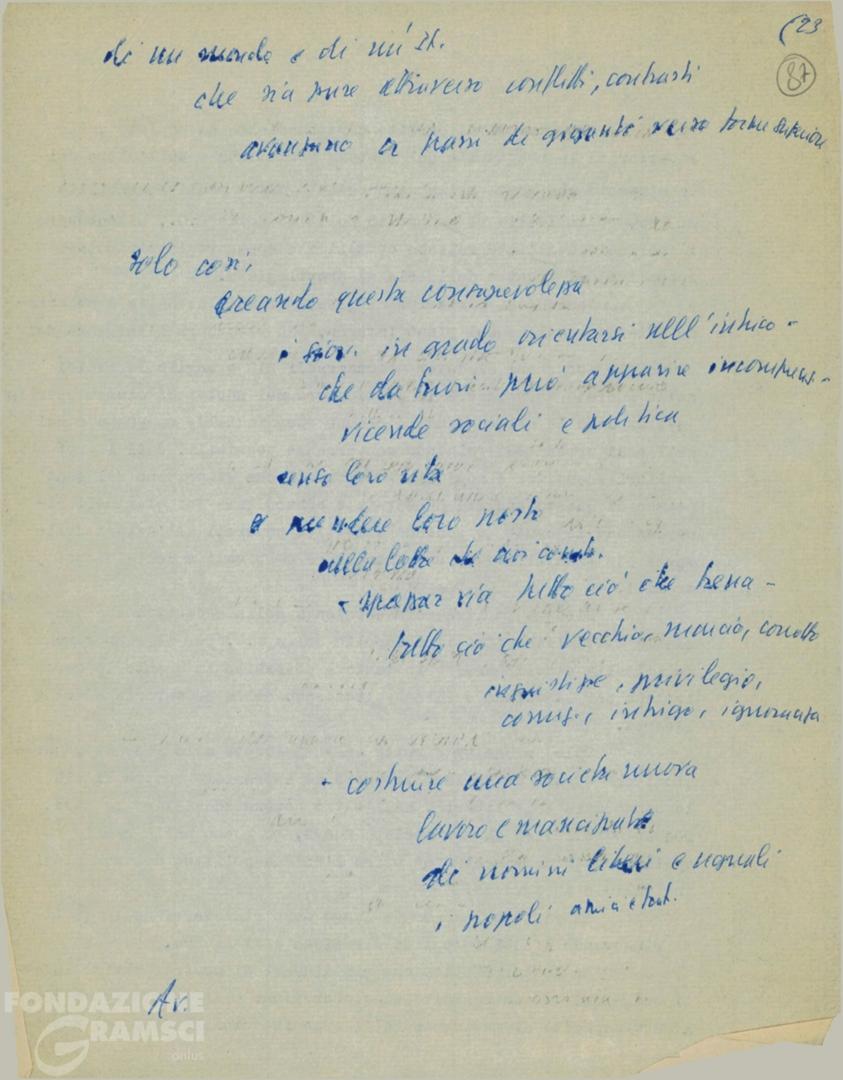 (23
87
di un mondo e di un' It.
che sia pure attraverso conflitti, contrasti
avanzano a passi di giganti verso forme superiori
solo così,
creando questa consapevolezza
i giov. in grado orientarsi nell'intrico -
che da fuori può apparire incompens. -
vicende sociali e politica
senso loro vita
e prendere loro posto
nella lotta che noi comb.
- spazzar via tutto ciò che frena -
tutto ciò che vecchio, marcio, corrotto
ingiustizie, privilegio,
corruz., intrigo, ignoranza
- costruire una società nuova
lavoro emancipato
di uomini liberi e uguali
i popoli amici e frat.
Av.
FONDAZIONE
GRAMSCI
onlus